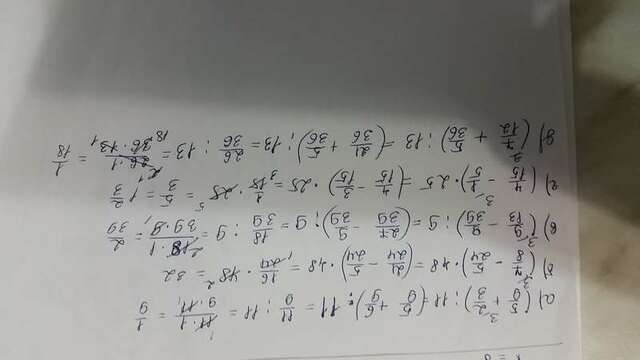 а) (5/9 + 2/3) : 11 = (5/9 + 6/9) : 11 = 11/9 : 11 = 11·1/9·11 = 1/9
б) (7/8 - 5/24) · 48 = (21/24 - 5/24) · 48 = 16/24 · 48 = 32
в) (9/13 - 9/39) : 9 = (27/39 - 9/39) : 9 = 18/39 : 9 = 18·1/39·9 = 2/39
г) (4/15 - 1/5) · 25 = (4/15 - 3/15) · 25 = 1/15 · 25 = 5/3 = 1 2/3
д) (7/12 + 5/36) : 13 = (21/36 + 5/36) : 13 = 26/36 : 13 = 26·1/36·13 = 1/18